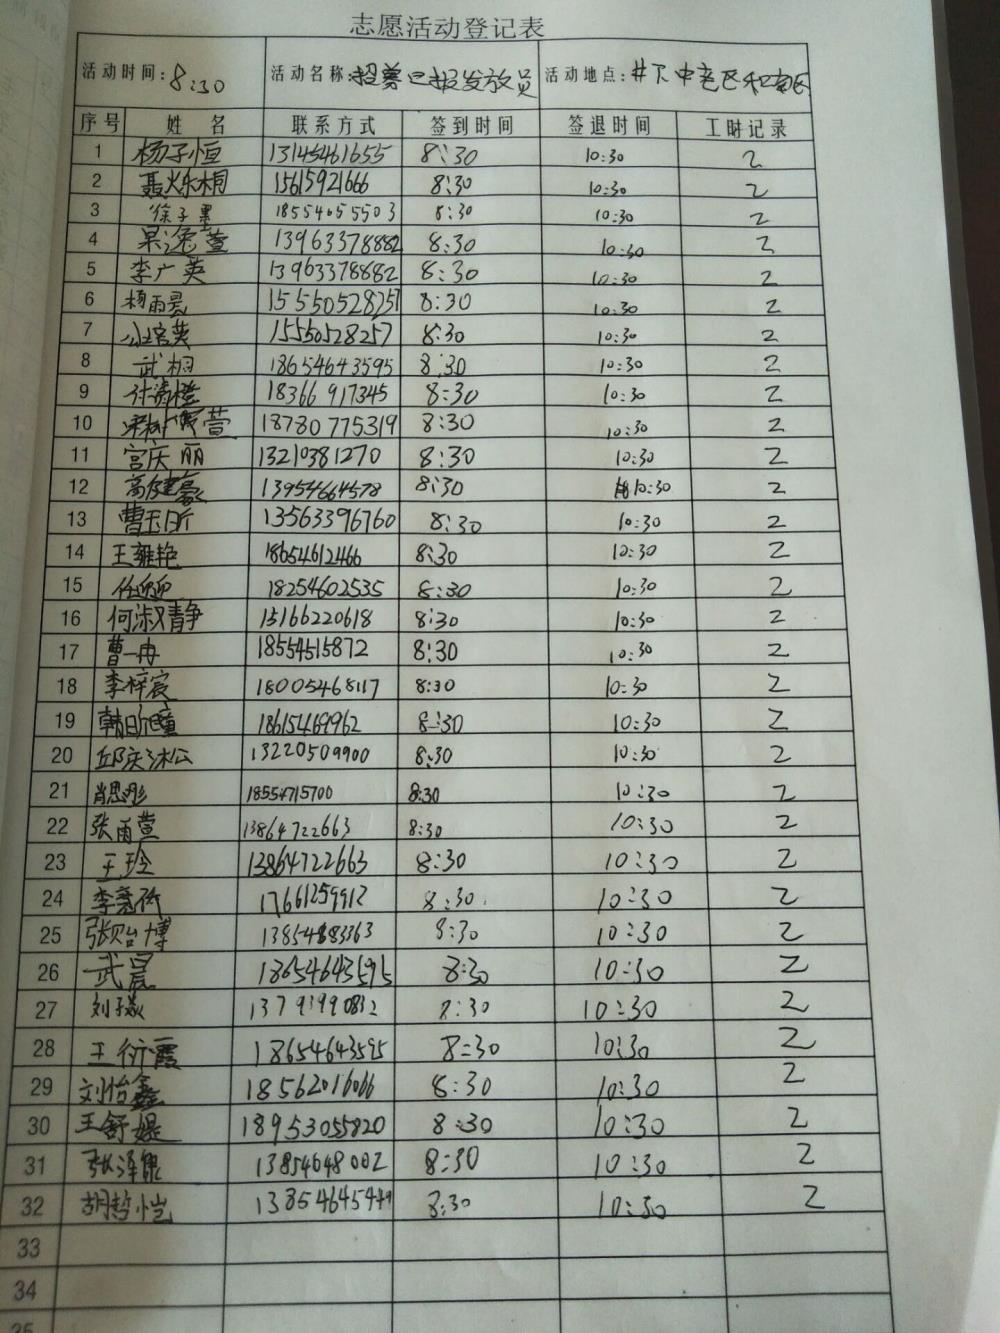 志愿活动登记表
活动时间:8:30 活动名称: 招募 报发放员 活动地点: 井下中 区和南区
序号 姓名 联系方式 签到时间 签退时间 工时记录
1 杨子恒 13145461655 8:30 10:30 2
2 聂烁桐 15615921666 8:30 10:30 2
3 徐子墨 18554055503 8:30 10:30 2
4 13963378882 8:30 10:30 2
5 李广英 13963378882 8:30 10:30 2
6 杨雨 15550528257 8:30 10:30 2
7 15550528257 8:30 10:30 2
8 武桐 18654643595 8:30 10:30 2
9 18366917345 8:30 10:30 2
10 18780775319 8:30 10:30 2
11 宫庆丽 13210381270 8:30 10:30 2
12 高健豪 13954664578 8:30 10:30 2
13 曹玉 13563396760 8:30 10:30 2
14 王雍艳 18654612466 8:30 10:30 2
15 任迎迎 18254602535 8:30 10:30 2
16 何淑静 15166220618 8:30 10:30 2
17 曹一冉 18554515872 8:30 10:30 2
18 李梓宸 18005468117 8:30 10:30 2
19 18615469962 8:30 10:30 2
20 邱庆沐公 13220509900 8:30 10:30 2
21 肖思彤 18554715700 8:30 10:30 2
22 张雨萱 13864722663 8:30 10:30 2
23 王玲 13864722663 8:30 10:30 2
24 17661259912 8:30 10:30 2
25 张贻博 8:30 10:30 2
26 武晨 18654643595 8:30 10:30 2
27 刘子 8:30 10:30 2
28 王衍霞 18654643595 8:30 10:30 2
29 刘怡鑫 18562016066 8:30 10:30 2
30 王舒媞 18953055820 8:30 10:30 2
31 13854648002 8:30 10:30 2
32 胡哲恺 13854645449 8:30 10:30 2
33
34